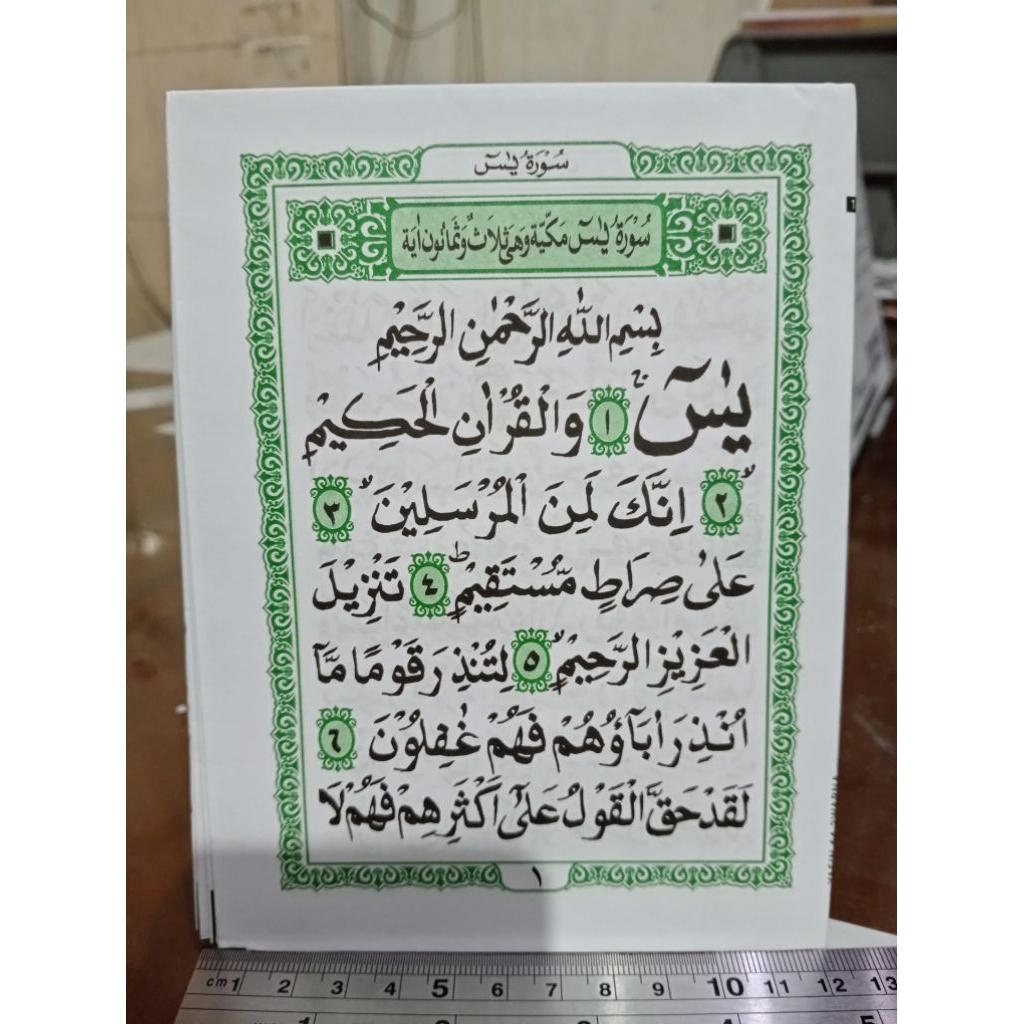 سُوْرَةُ يٰسٓ
سُوْرَةُ يٰسٓ مَكِّيَّةٌ وَهِيَ ثَلَاثٌ وَثَمَانُوْنَ اٰيَةً
بِسْمِ اللّٰهِ الرَّحْمٰنِ الرَّحِيْمِ
يٰسٓ ۚ ١ وَالْقُرْاٰنِ الْحَكِيْمِ
ۙ ٢ اِنَّكَ لَمِنَ الْمُرْسَلِيْنَ ۙ ٣
عَلٰى صِرَاطٍ مُّسْتَقِيْمٍ ۗ ٤ تَنْزِيْلَ
الْعَزِيْزِ الرَّحِيْمِ ۙ ٥ لِتُنْذِرَ قَوْمًا مَّآ
اُنْذِرَ اٰبَاۤؤُهُمْ فَهُمْ غٰفِلُوْنَ ٦
لَقَدْ حَقَّ الْقَوْلُ عَلٰٓى اَكْثَرِهِمْ فَهُمْ لَا
١
cm 1 2 3 4 5 6 7 8 9 10 11 12 13